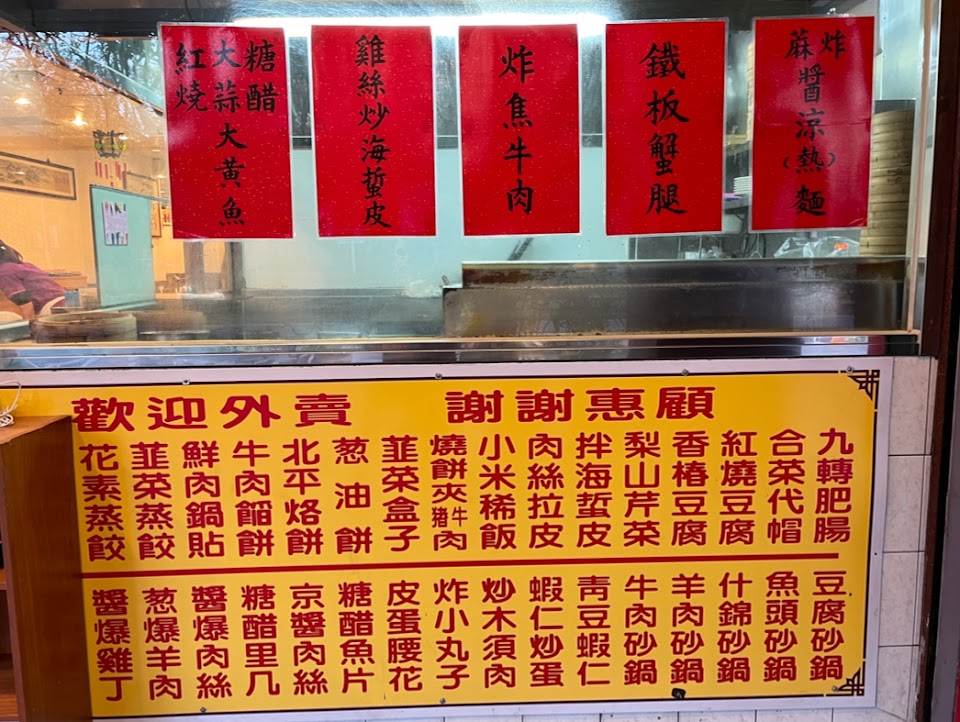 炸
蔴
醬涼(熱)麵
鐵板蟹腿
炸焦牛肉
雞絲炒海蜇皮
糖醋
大蒜
紅燒
大黃魚
歡迎外賣 謝謝惠顧
九轉肥腸
合菜代帽
紅燒豆腐
香椿豆腐
梨山芹菜
拌海蜇皮
肉絲拉皮
小米稀飯
燒餅夾牛豬肉
韮菜盒子
葱油餅
北平烙餅
牛肉餡餅
鮮肉鍋貼
韮菜蒸餃
花素蒸餃
豆腐砂鍋
魚頭砂鍋
什錦砂鍋
羊肉砂鍋
牛肉砂鍋
青豆蝦仁
蝦仁炒蛋
炒木須肉
炸小丸子
皮蛋腰花
糖醋魚片
京醬肉絲
糖醋里几
醬爆肉絲
葱爆羊肉
醬爆雞丁